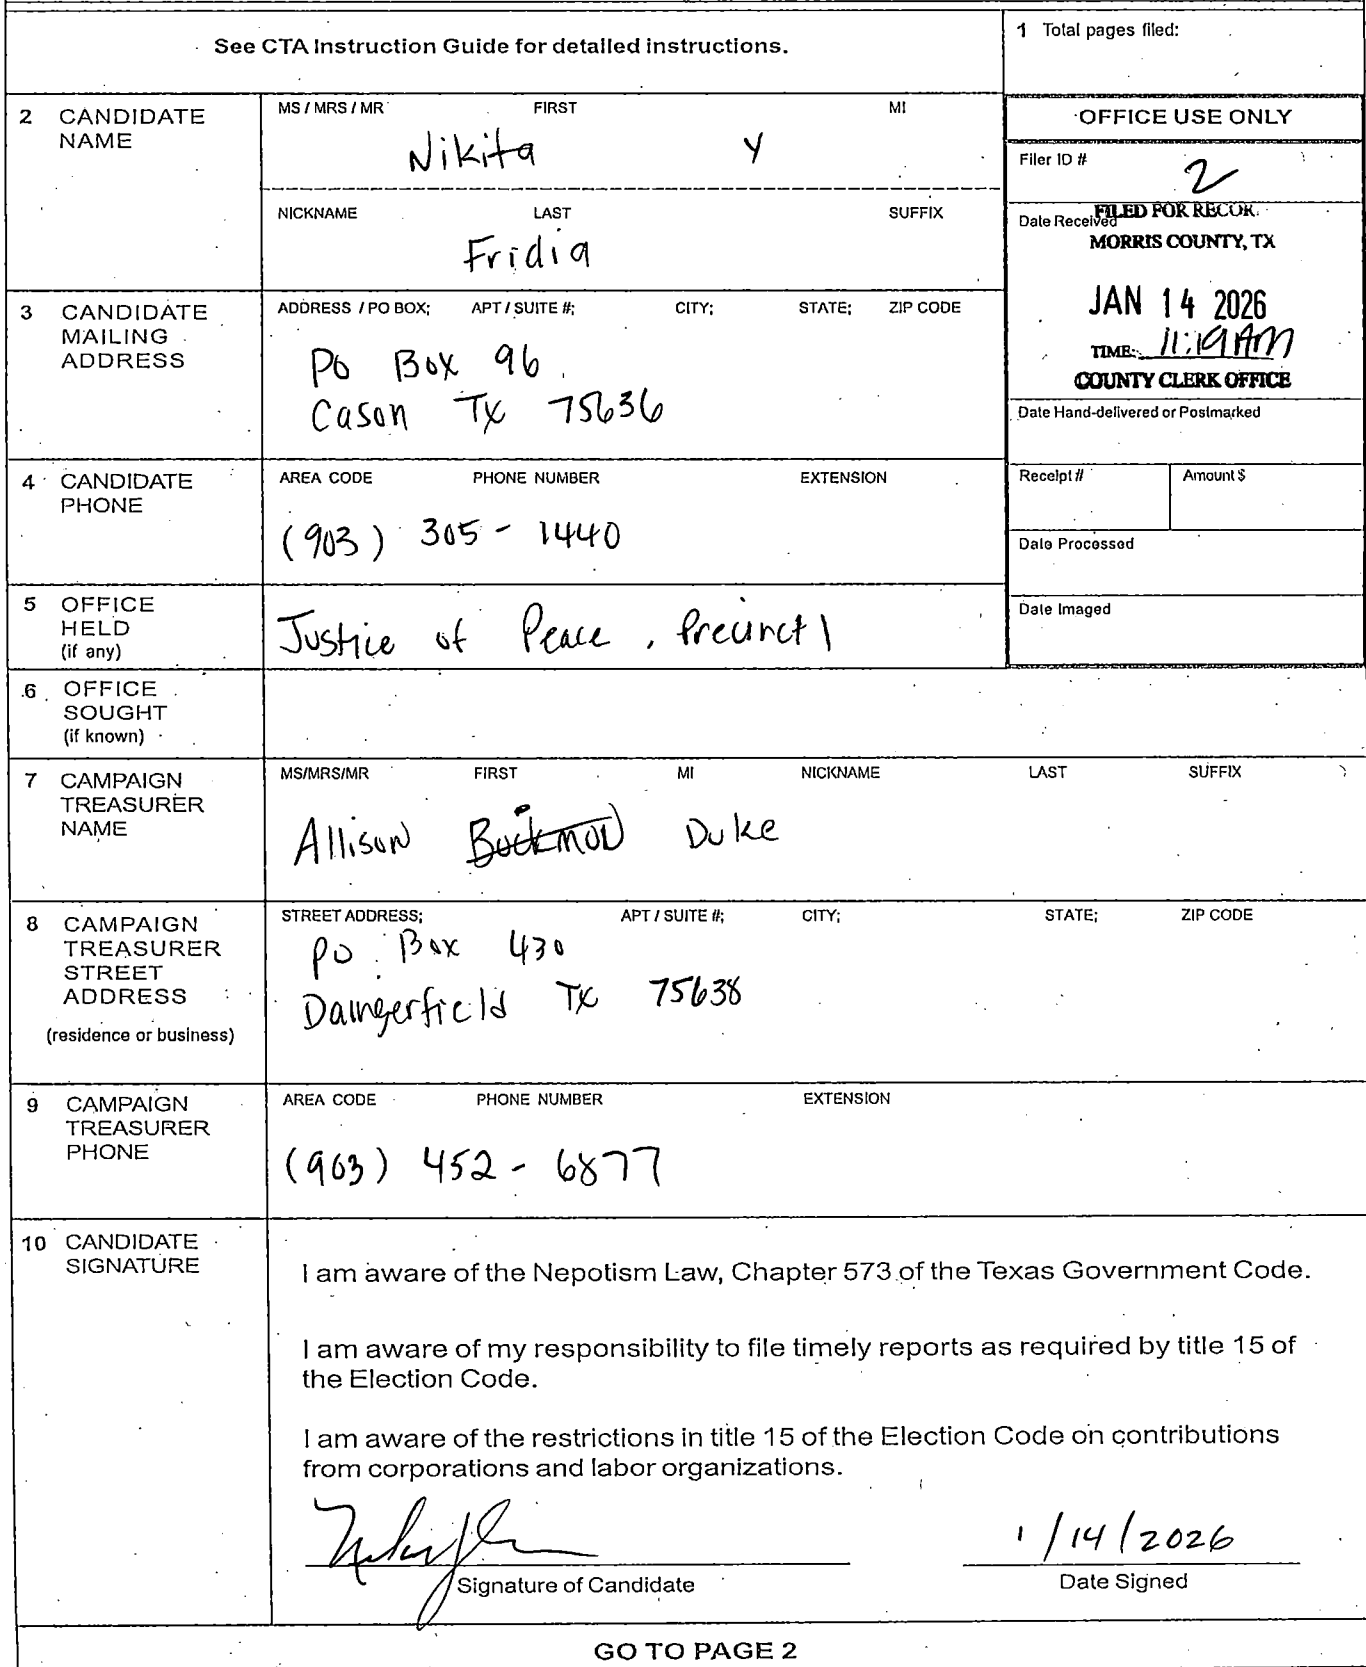 See CTA Instruction Guide for detailed instructions.
1 Total pages filed:
2 CANDIDATE NAME
MS / MRS / MR FIRST MI
Nikita Y
NICKNAME LAST SUFFIX
Fridia
OFFICE USE ONLY
Filer ID #
2
Date Received
FILED FOR RECOR
MORRIS COUNTY, TX
JAN 14 2026
TIME: 11:19 AM
COUNTY CLERK OFFICE
Date Hand-delivered or Postmarked
Receipt # Amount $
Date Processed
Date Imaged
3 CANDIDATE MAILING ADDRESS
ADDRESS / PO BOX; APT / SUITE #; CITY; STATE; ZIP CODE
Po Box 96
Cason TX 75636
4 CANDIDATE PHONE
AREA CODE PHONE NUMBER EXTENSION
(903) 305 - 1440
5 OFFICE HELD (if any)
Justice of Peace, Precinct 1
6 OFFICE SOUGHT (if known)
7 CAMPAIGN TREASURER NAME
MS/MRS/MR FIRST MI NICKNAME LAST SUFFIX
Allison Duke
8 CAMPAIGN TREASURER STREET ADDRESS (residence or business)
STREET ADDRESS; APT / SUITE #; CITY; STATE; ZIP CODE
PO Box 430
Daingerfield TX 75638
9 CAMPAIGN TREASURER PHONE
AREA CODE PHONE NUMBER EXTENSION
(903) 452 - 6877
10 CANDIDATE SIGNATURE
I am aware of the Nepotism Law, Chapter 573 of the Texas Government Code.
I am aware of my responsibility to file timely reports as required by title 15 of
the Election Code.
I am aware of the restrictions in title 15 of the Election Code on contributions
from corporations and labor organizations.
1/14/2026
Signature of Candidate Date Signed
GO TO PAGE 2